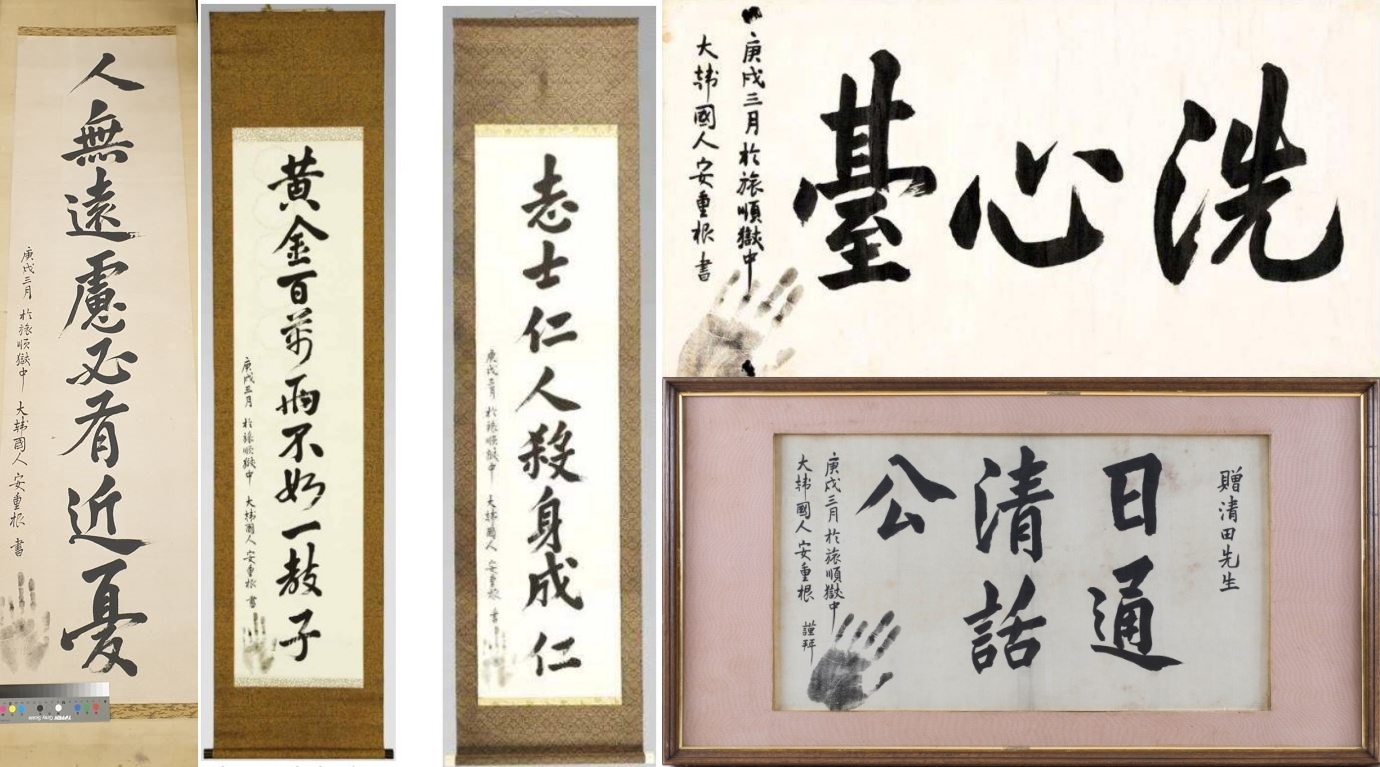 人無遠慮必有近憂
庚戌三月 於旅順獄中 大韓國人 安重根 書
TIFFEN Gray Scale
黃金百萬兩不如一敎子
庚戌三月 於旅順獄中 大韓國人 安重根 書
志士仁人殺身成仁
庚戌三月 於旅順獄中 大韓國人 安重根 書
洗心臺
庚戌三月於旅順獄中
大韓國人 安重根 書
贈清田先生
日通
清話
公
庚戌三月 於旅順獄中
大韓國人 安重根 謹拜